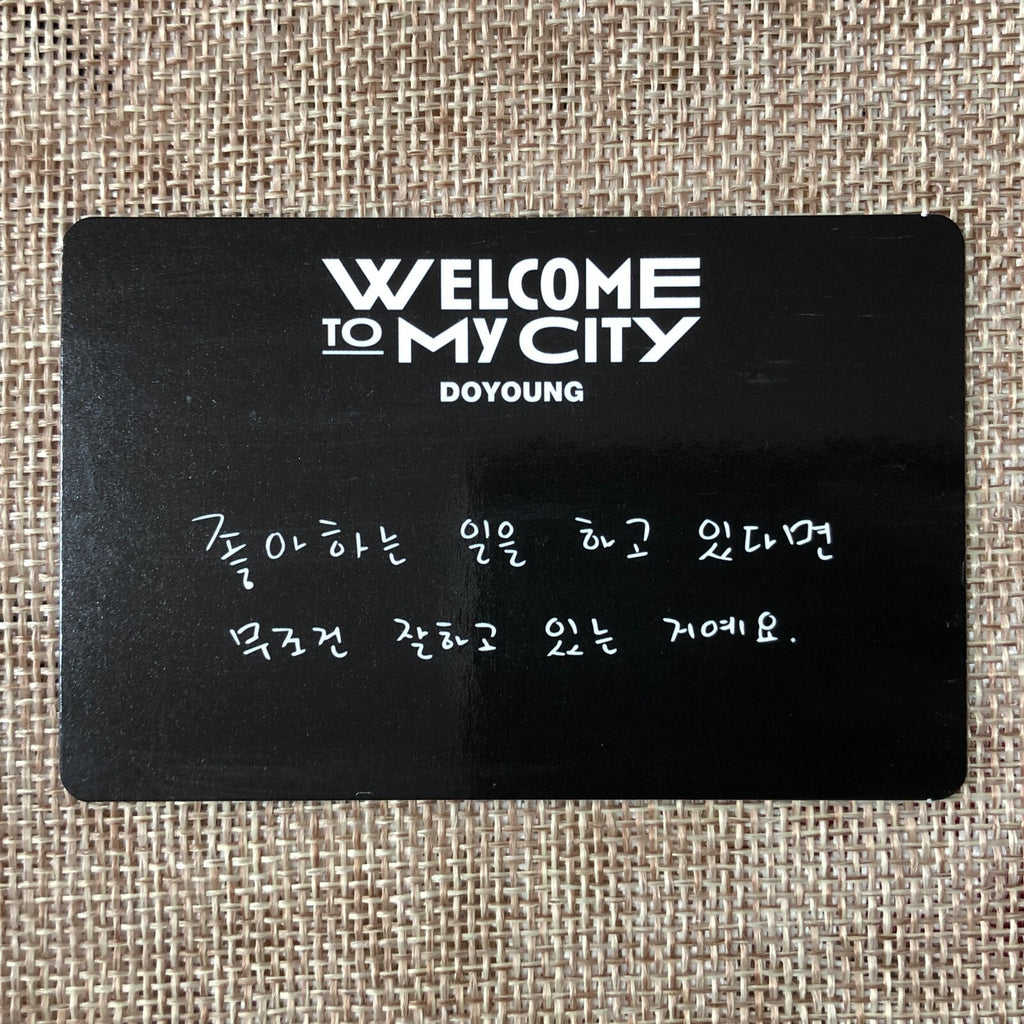 WELCOME
TO MY CITY
DOYOUNG
좋아하는 일을 하고 있다면
무조건 잘하고 있는 거예요.